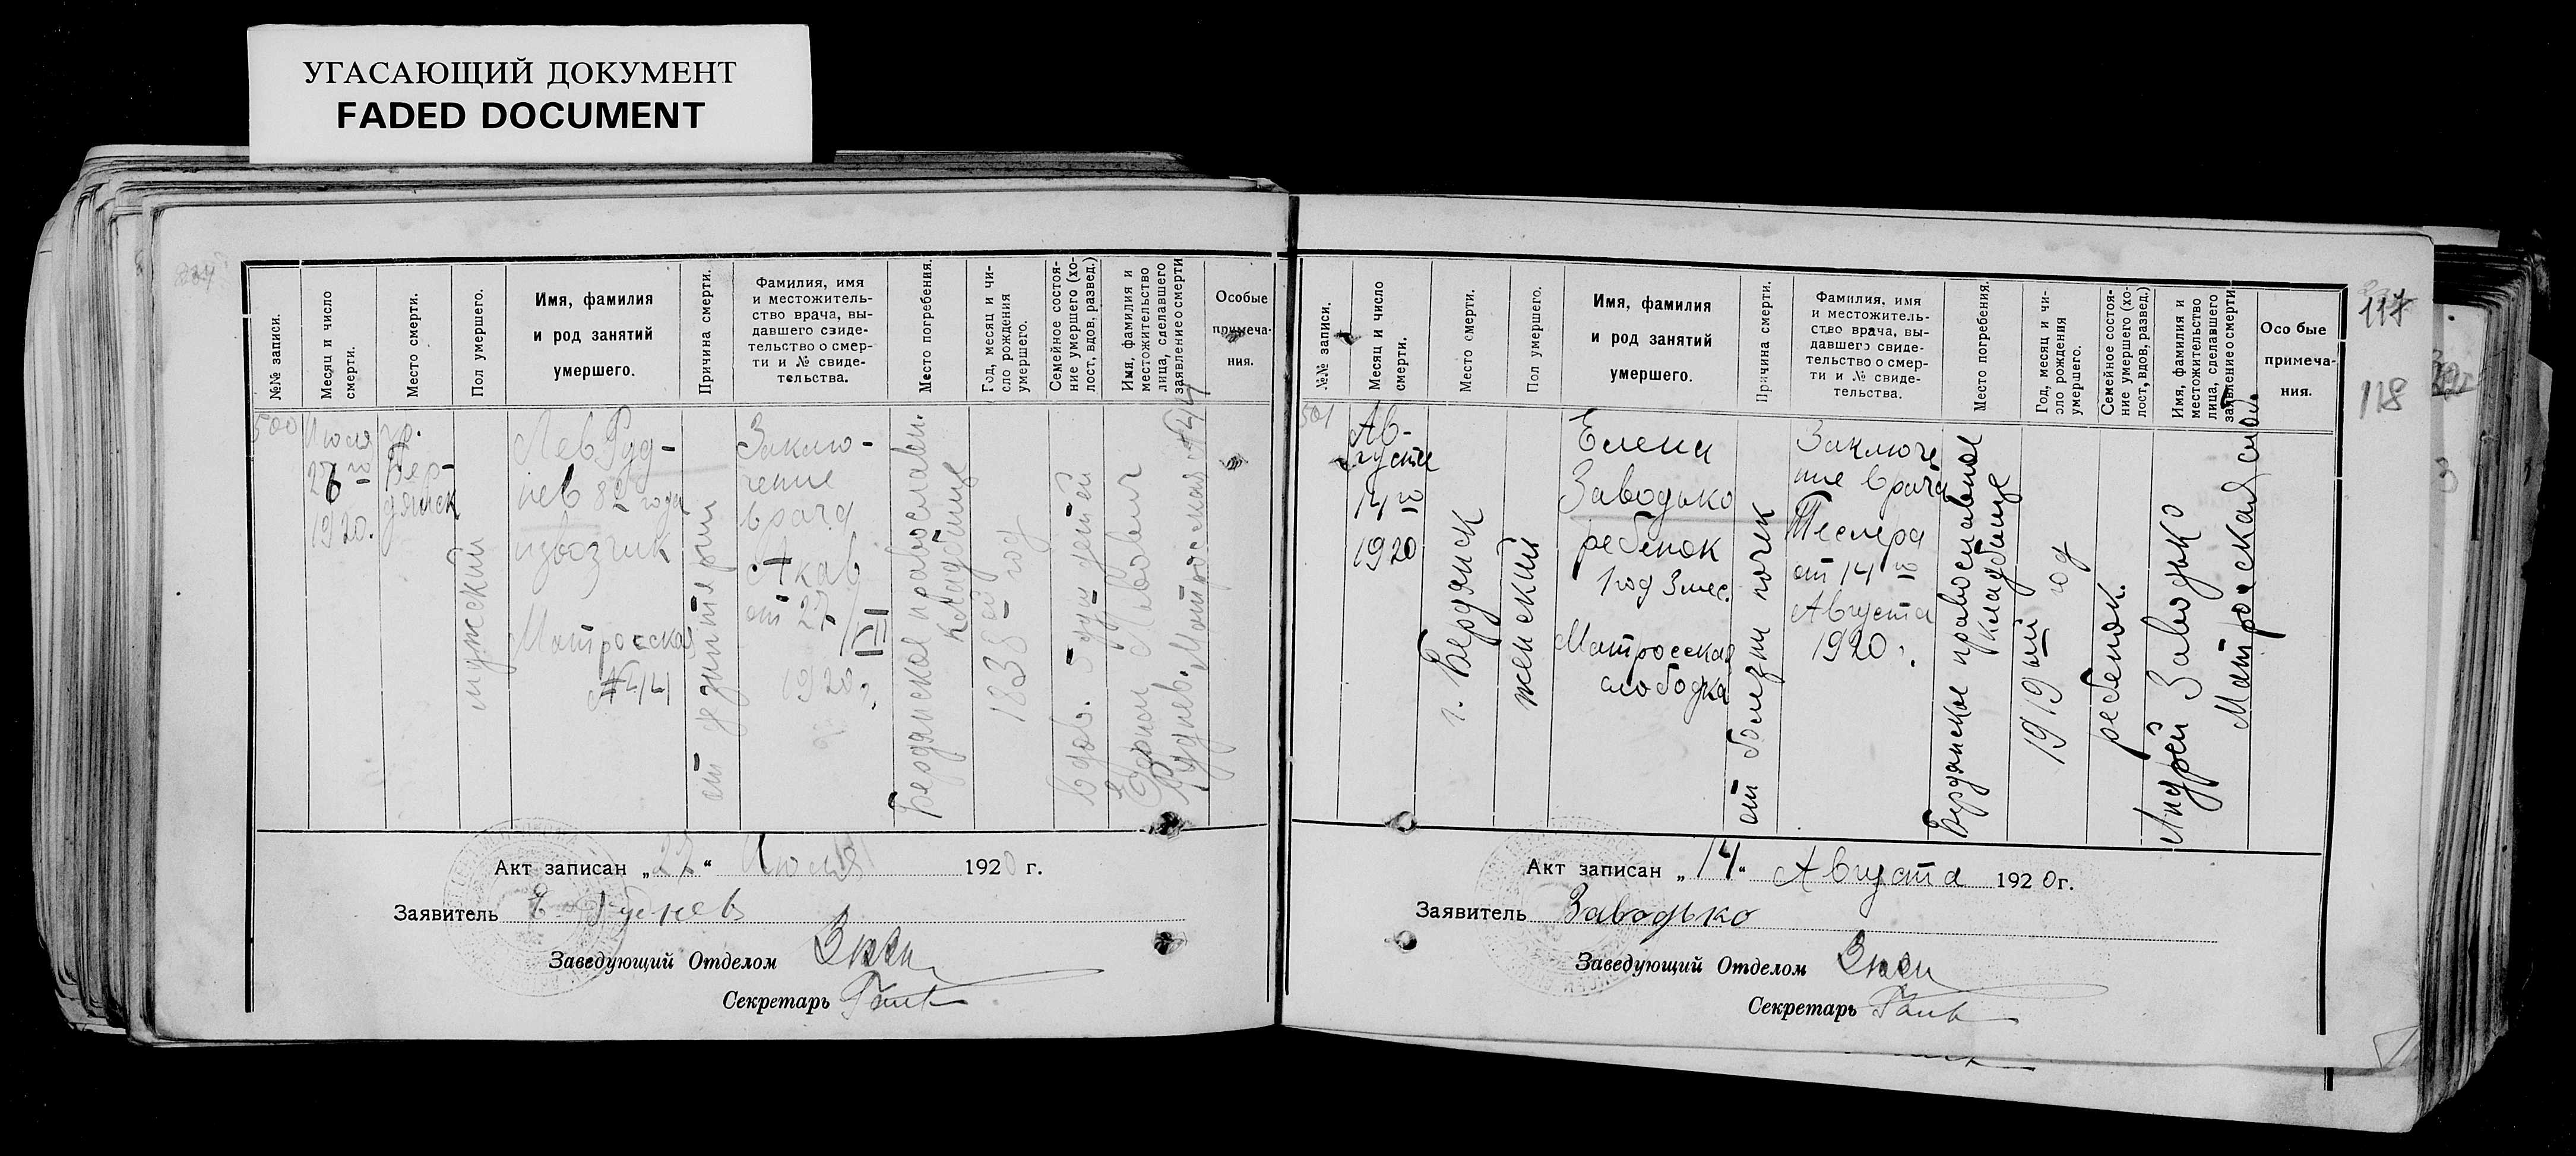 УГАСАЮЩИЙ ДОКУМЕНТ
FADED DOCUMENT
№№ записи.
Месяц и число
смерти.
Место смерти.
Пол умершего.
Имя, фамилия
и род занятий
умершего.
Причина смерти.
Фамилия, имя
и местожитель-
ство врача, вы-
давшего свиде-
тельство о смер-
ти и № свиде-
тельства.
Место погребения.
Год, месяц и чи-
сло рождения
умершего.
Семейное состоя-
ние умершего (хо-
лост, вдов, развед.)
Имя, фамилия и
местожительство
лица, сделавшего
заявление о смерти
Особые
примеча-
ния.
500
Июля
26го
1920.
гр.
Бер-
дянск
мужской
Лев Руд-
нев 82 года
извозчик
Матросская
№44
Заклю-
чение
врача
Акав
от 27/VII
1920 г.
Бердянское православн.
кладбище
1838ой год
вдов. 5 душ детей
Руднев. Матросская №44
Акт записан „27“ Июля 1920 г.
Заявитель Е Руднев
Заведующий Отделом
Секретарь
117
118
№№ записи.
Месяц и число
смерти.
Место смерти.
Пол умершего.
Имя, фамилия
и род занятий
умершего.
Причина смерти.
Фамилия, имя
и местожитель-
ство врача, вы-
давшего свиде-
тельство о смер-
ти и № свиде-
тельства.
Место погребения.
Год, месяц и чи-
сло рождения
умершего.
Семейное состоя-
ние умершего (хо-
лост, вдов, развед.)
Имя, фамилия и
местожительство
лица, сделавшего
заявление о смерти.
Осо бые
примеча-
ния.
501
Ав-
густа
14го
1920
г. Бердянск
женский
Елена
Заводько
ребенок
1 год 3 мес.
Матросская
слободка
от болезни почек
Заключе
ние врача
Теслера
от 14го
Августа
1920 г.
Бердянское православное
кладбище
1919ый год
ребенок.
Андрей Заводько
Матросская слоб.
Акт записан „14“ Августа 1920г.
Заявитель Заводько
Заведующий Отделом
Секретарь